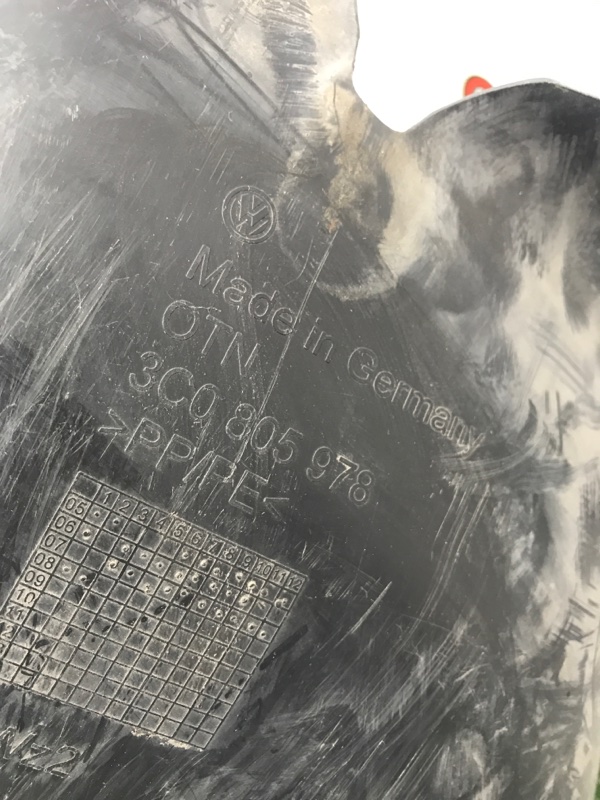 VW
Made in Germany
OTN
3C0 805 978
>PP/PE<
1 2 3 4 5 6 7 8 9 10 11 12
05
06
07
08
09
10
11
12
Nz2